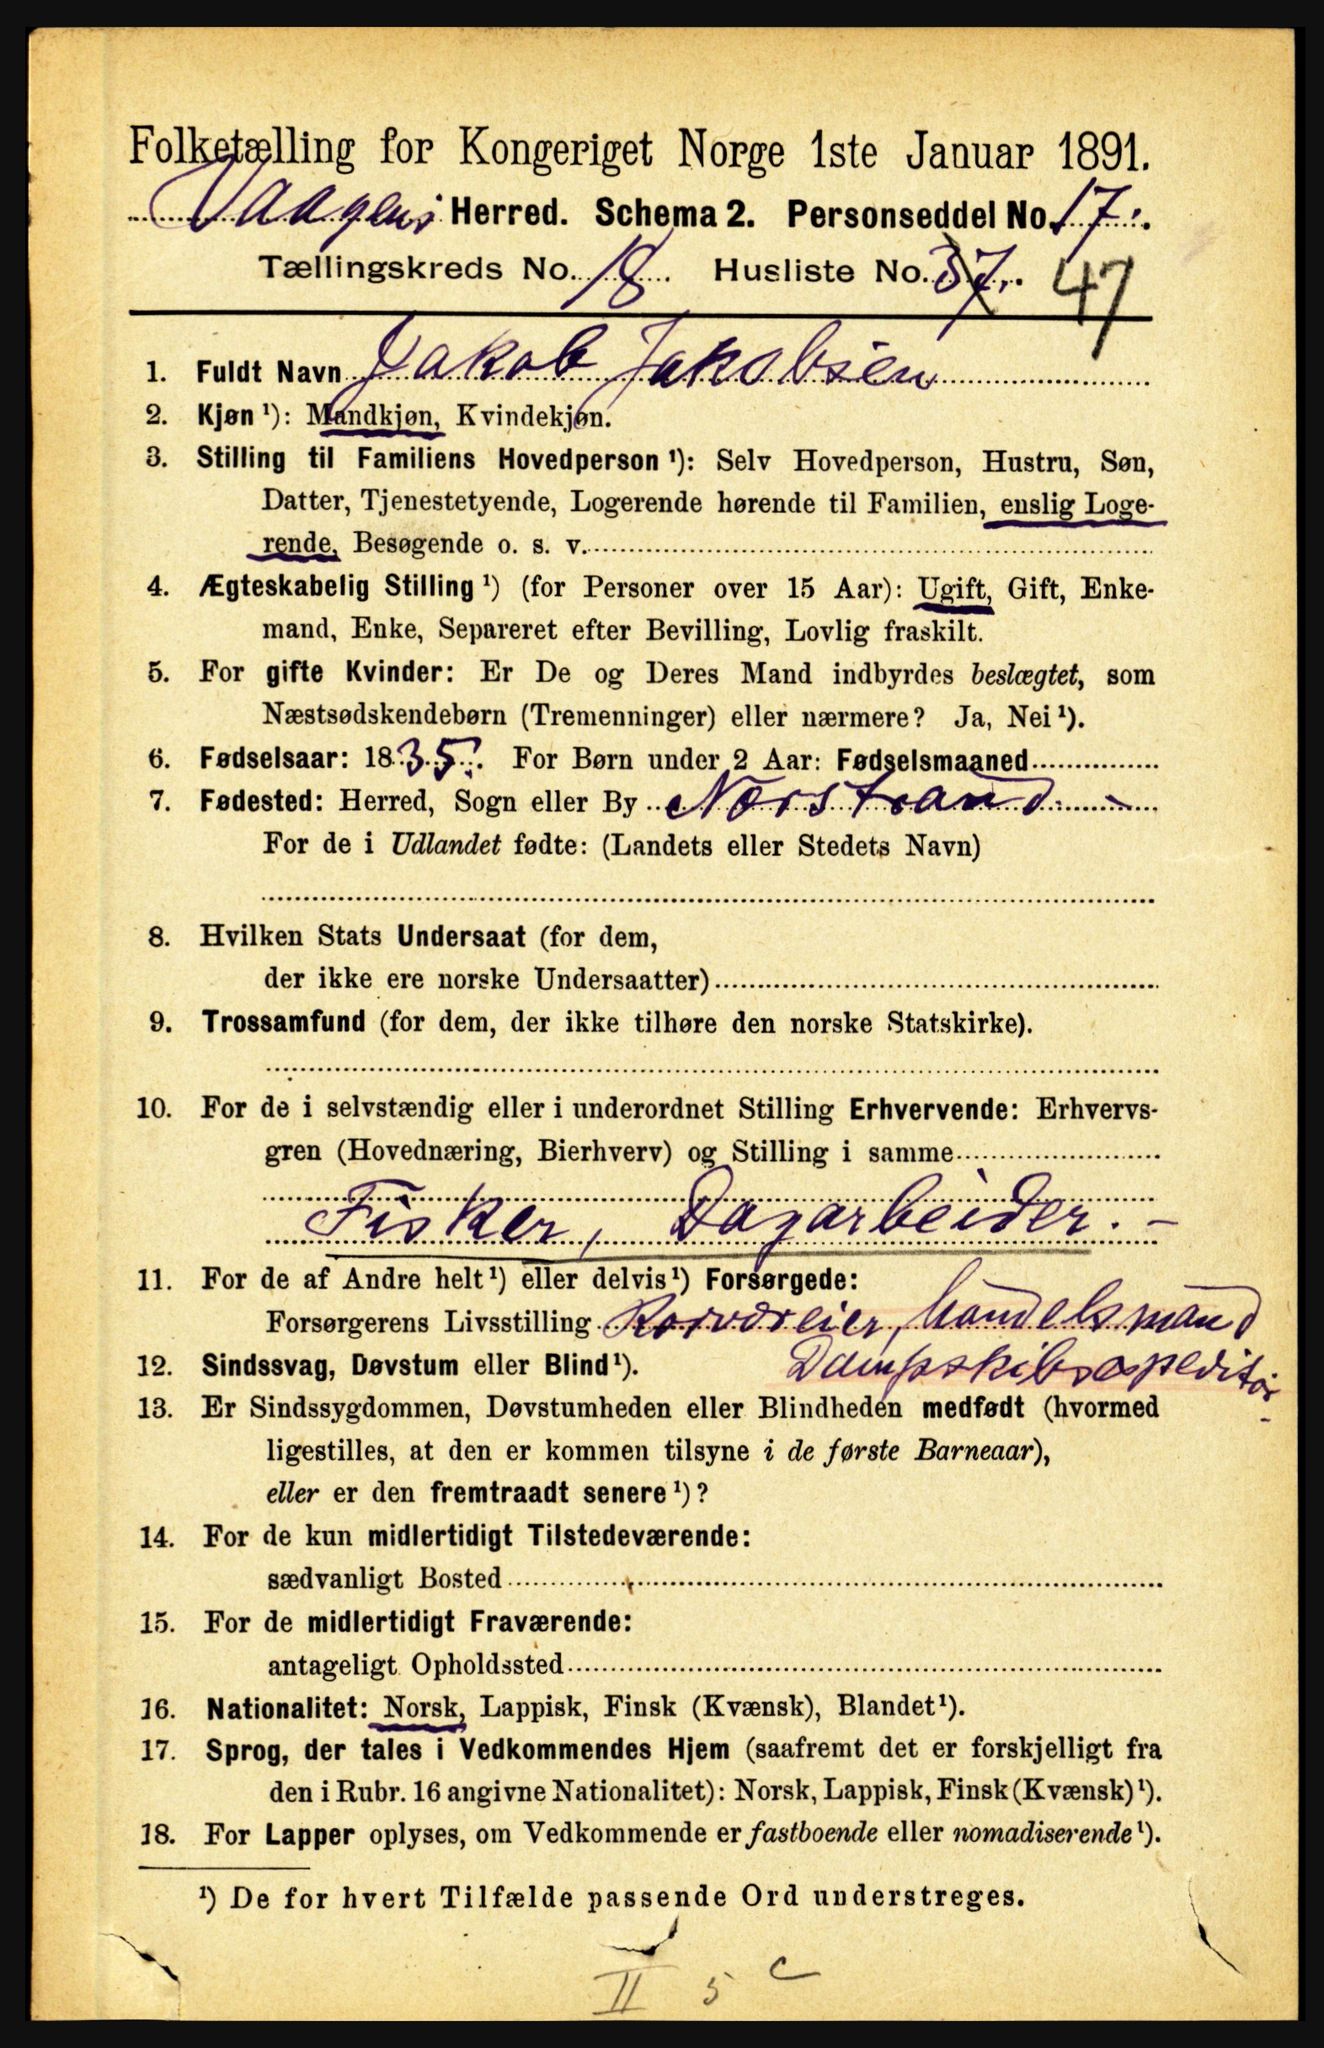 Folketælling for Kongeriget Norge 1ste Januar 1891.
Vaagens Herred. Schema 2. Personseddel No. 17.
Tællingskreds No. 18. Husliste No. 37. 47
1. Fuldt Navn Jakob Jakobsen
2. Kjøn ¹): Mandkjøn, Kvindekjøn.
3. Stilling til Familiens Hovedperson ¹): Selv Hovedperson, Hustru, Søn,
Datter, Tjenestetyende, Logerende hørende til Familien, enslig Loge-
rende, Besøgende o. s. v.
4. Ægteskabelig Stilling ¹) (for Personer over 15 Aar): Ugift, Gift, Enke-
mand, Enke, Separeret efter Bevilling, Lovlig fraskilt.
5. For gifte Kvinder: Er De og Deres Mand indbyrdes beslægtet, som
Næstsødskendebørn (Tremenninger) eller nærmere? Ja, Nei ¹).
6. Fødselsaar: 1835. For Børn under 2 Aar: Fødselsmaaned
7. Fødested: Herred, Sogn eller By Nærstrand. -
For de i Udlandet fødte: (Landets eller Stedets Navn)
8. Hvilken Stats Undersaat (for dem,
der ikke ere norske Undersaatter)
9. Trossamfund (for dem, der ikke tilhøre den norske Statskirke).
10. For de i selvstændig eller i underordnet Stilling Erhvervende: Erhvervs-
gren (Hovednæring, Bierhverv) og Stilling i samme
Fisker, Dagarbeider. -
11. For de af Andre helt ¹) eller delvis ¹) Forsørgede:
Forsørgerens Livsstilling handelsmand
12. Sindssvag, Døvstum eller Blind ¹). Dampskibsexpeditør
13. Er Sindssygdommen, Døvstumheden eller Blindheden medfødt (hvormed
ligestilles, at den er kommen tilsyne i de første Barneaar),
eller er den fremtraadt senere ¹)?
14. For de kun midlertidigt Tilstedeværende:
sædvanligt Bosted
15. For de midlertidigt Fraværende:
antageligt Opholdssted
16. Nationalitet: Norsk, Lappisk, Finsk (Kvænsk), Blandet ¹).
17. Sprog, der tales i Vedkommendes Hjem (saafremt det er forskjelligt fra
den i Rubr. 16 angivne Nationalitet): Norsk, Lappisk, Finsk (Kvænsk) ¹).
18. For Lapper oplyses, om Vedkommende er fastboende eller nomadiserende ¹).
¹) De for hvert Tilfælde passende Ord understreges.
II 5 c